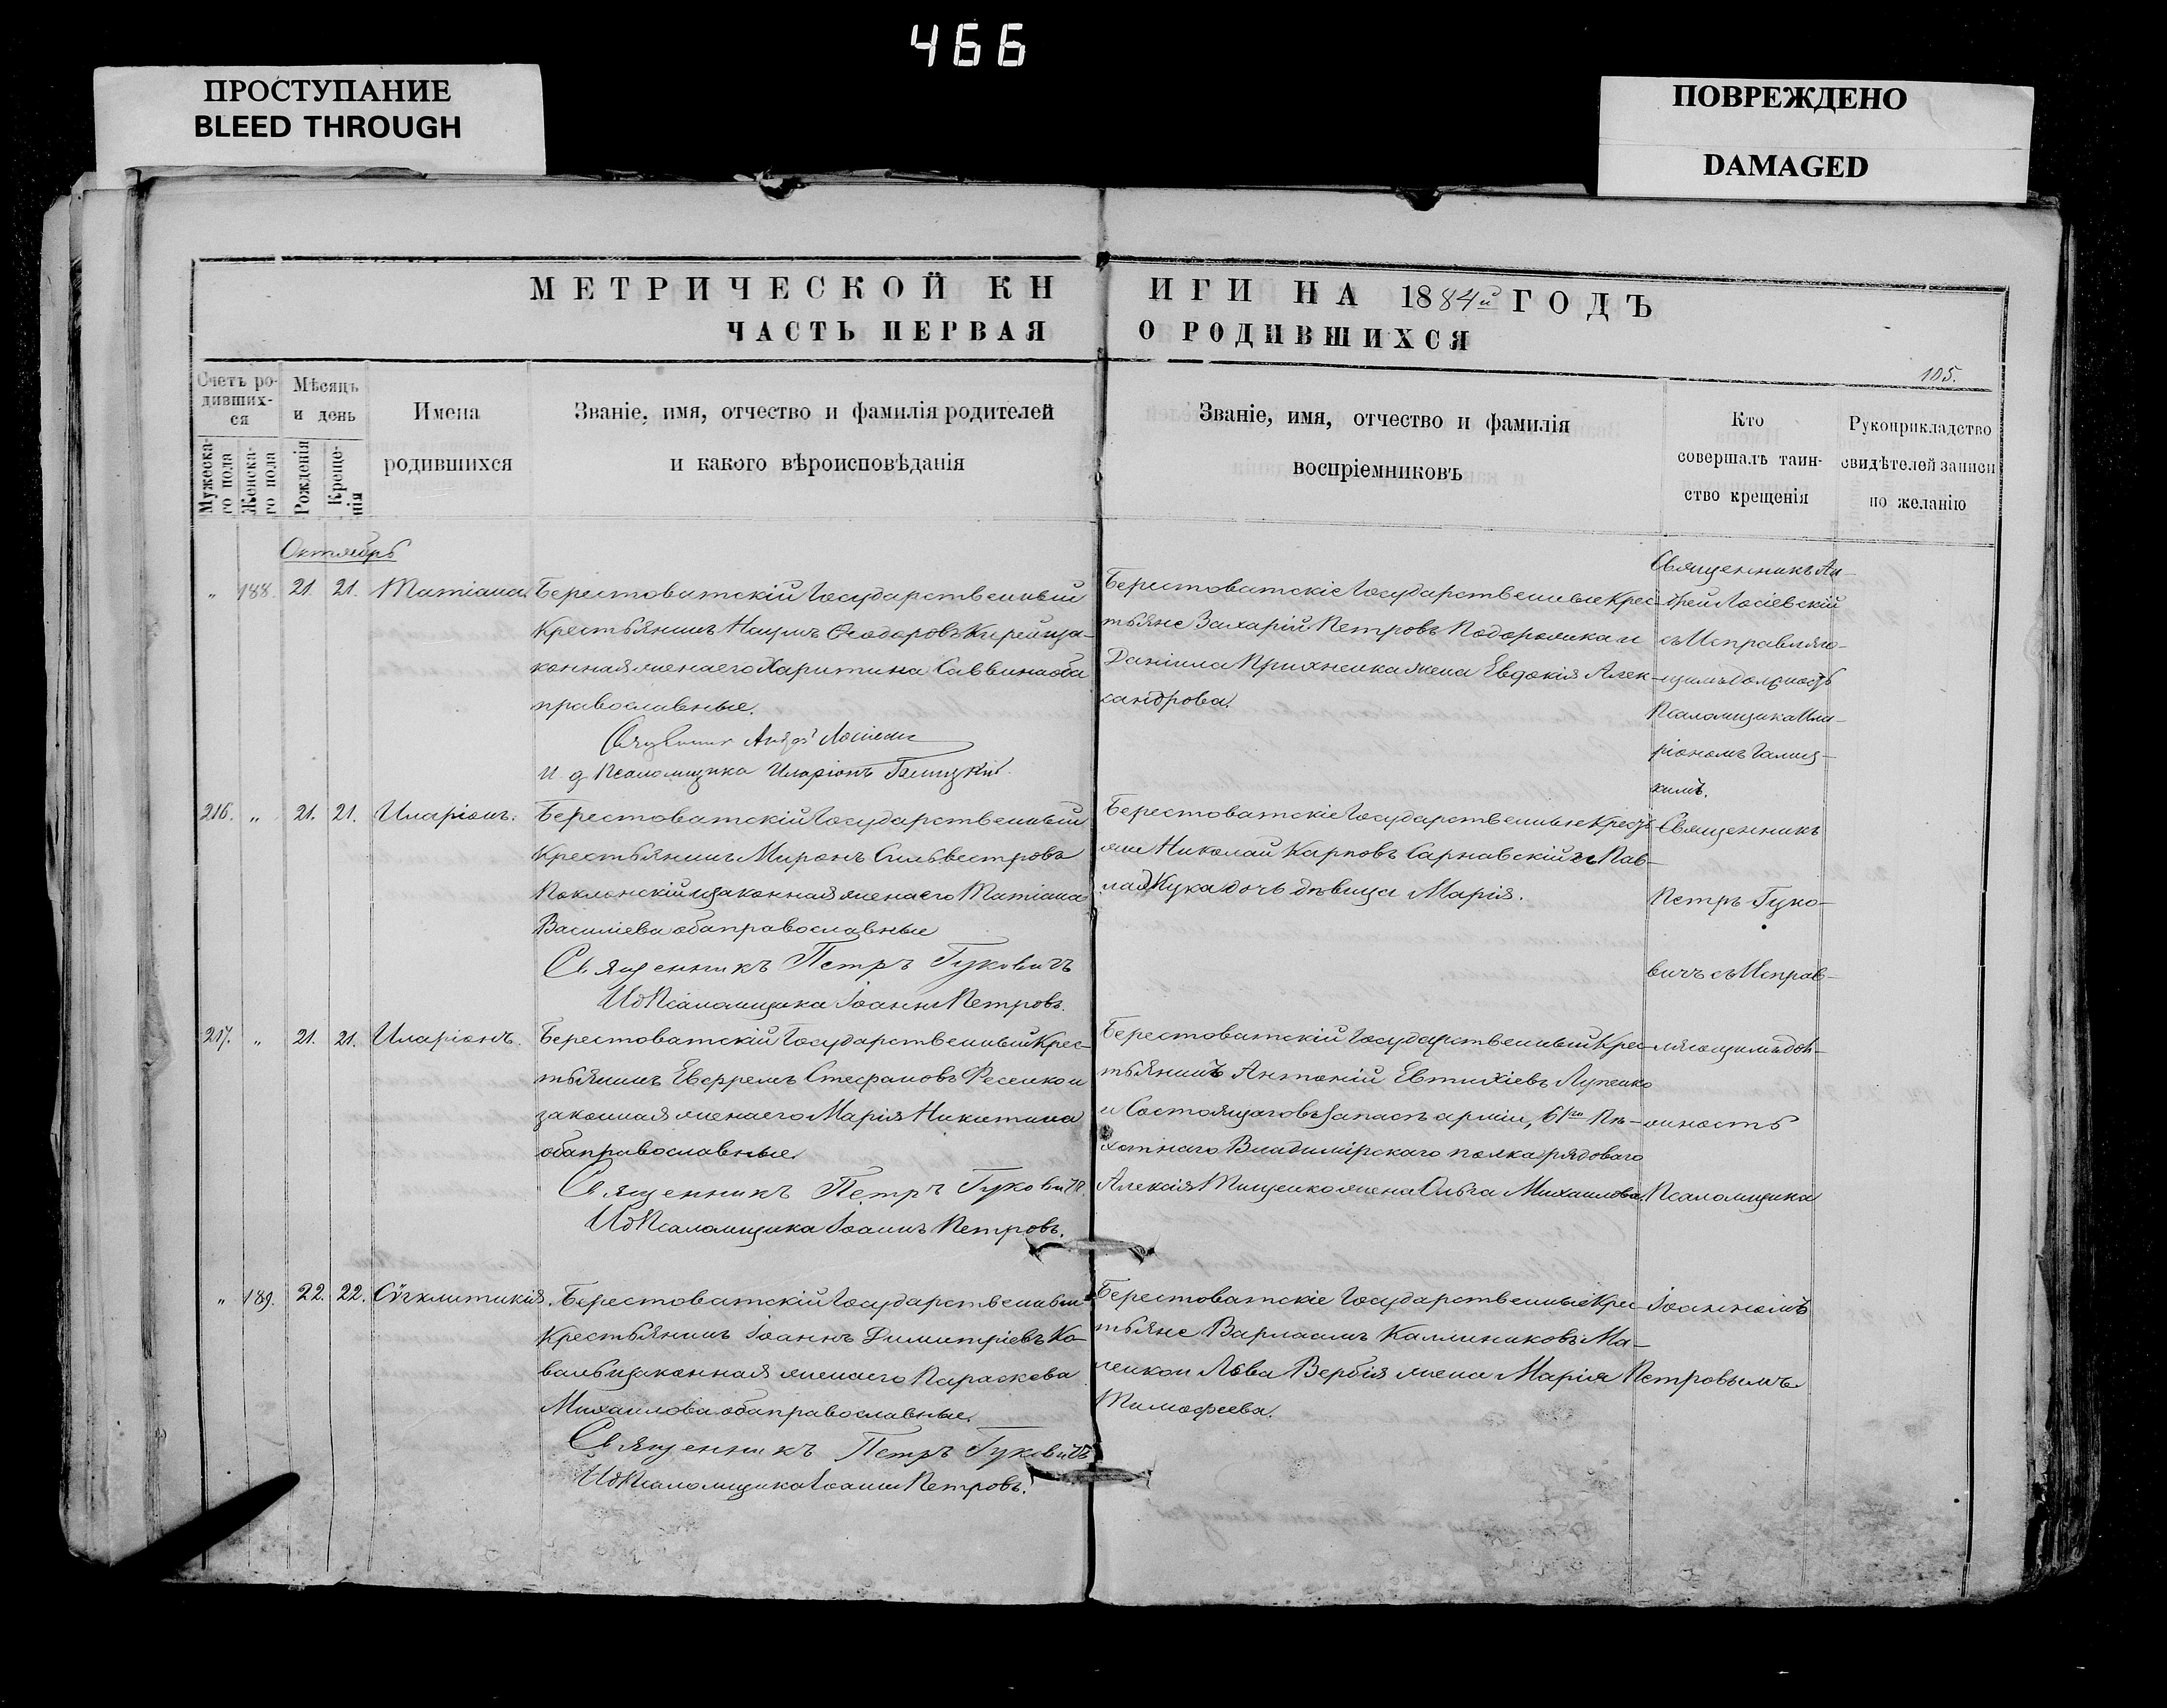 466
ПРОСТУПАНИЕ
BLEED THROUGH
ПОВРЕЖДЕНО
DAMAGED
МЕТРИЧЕСКОЙ КНИГИ НА 1884й ГОДЪ
ЧАСТЬ ПЕРВАЯ О РОДИВШИХСЯ
105.
Счетъ ро-
дивших-
ся
Мужеска-
го пола
Женска-
го пола
Мѣсяцъ
и день
Рожденія
Креще-
нія
Имена
родившихся
Званіе, имя, отчество и фамилія родителей
и какого вѣроисповѣданія
Званіе, имя, отчество и фамилія
воспріемниковъ
Кто
совершалъ таин-
ство крещенія
Рукоприкладство
свидѣтелей записи
по желанію
Октябрь
„ 188. 21. 21. Татіана.
Берестоватскій Государственный
Крестьянинъ Наумъ Ѳеодоровъ Кирей и за-
конная жена его Харитина Саввина оба
православные.
Священникъ Андрей Лосіевскій
И. д. Псаломщика Иларіонъ Галицкій.
Берестоватскіе Государственные Крес-
тьяне Захарій Петровъ Подорожка и
Даніила Прихненка жена Евдокія Алек-
сандрова.
Священникъ Ан-
дрей Лосіевскій
съ Исправляю-
щимъ должность
Псаломщика Ила-
ріономъ Галиц-
кимъ.
216. „ 21. 21. Иларіонъ.
Берестоватскій Государственный
Крестьянинъ Миронъ Сильвестровъ
Поклонскій и законная жена его Татіана
Василіева оба православные
Священникъ Петръ Гуковичъ
И д Псаломщика Іоаннъ Петровъ.
Берестоватскіе Государственные Кресть-
яне Николай Карповъ Сарнавскій и Пав-
ла Жука дочь дѣвица Марія.
Священникъ
Петръ Гуко-
вичъ съ Исправ-
217. „ 21. 21. Иларіонъ.
Берестоватскій Государственный Крес-
тьянинъ Евфремъ Стефановъ Фесенко и
законная жена его Марія Никитина
оба православные.
Священникъ Петръ Гуковичъ.
И д Псаломщика Іоаннъ Петровъ.
Берестоватскій Государственный Крес-
тьянинъ Антоній Евтихіевъ Лупенко
и Состоящаго въ Запасѣ арміи, 61го Пѣ-
хотнаго Владимірскаго полка рядоваго
Алексія Тищенко жена Ольга Михаилова.
ляющимъ дол-
жность
Псаломщика
„ 189. 22. 22. Сѵгклитикія.
Берестоватскій Государственный
Крестьянинъ Іоаннъ Димитріевъ Ко-
валь и законная жена его Параскева
Михаилова оба православные.
Священникъ Петръ Гуковичъ
И д Псаломщика Іоаннъ Петровъ.
Берестоватскіе Государственные Крес-
тьяне Варлаамъ Каллиниковъ Ма-
ленко и Льва Вербія жена Марія
Тимофеева.
Іоанномъ
Петровымъ